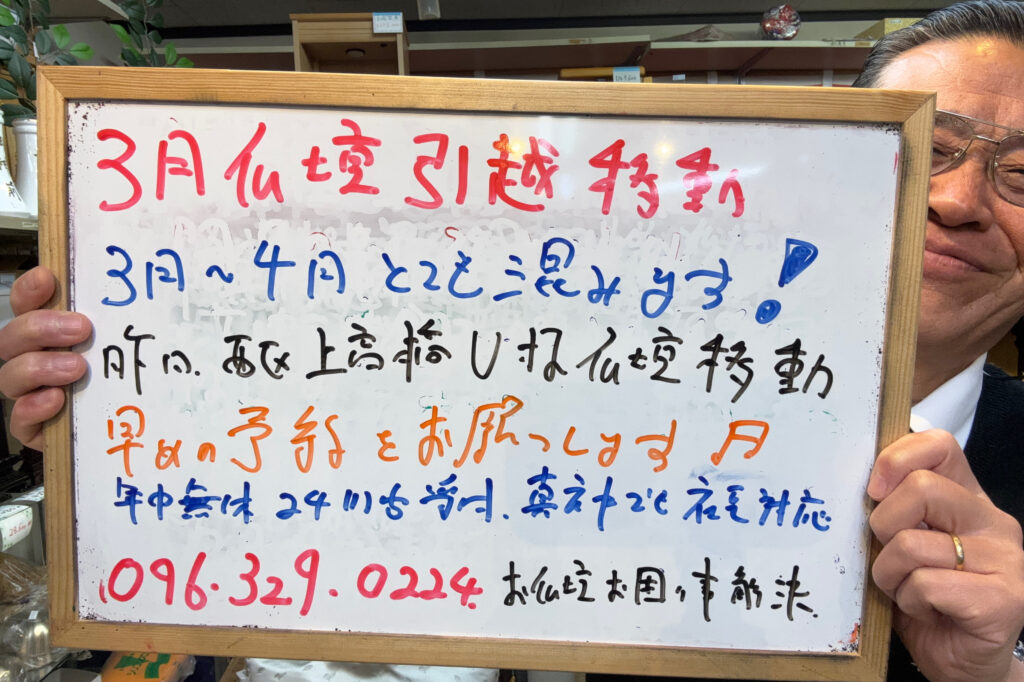 3月仏壇引越移動
3月～4月とても混みます!
昨日、西区上高橋U様仏壇移動
早めの予約をお願いします
年中無休24時間受付、真夜中でも社長対応
096.329.0224 お仏壇お困り事解決